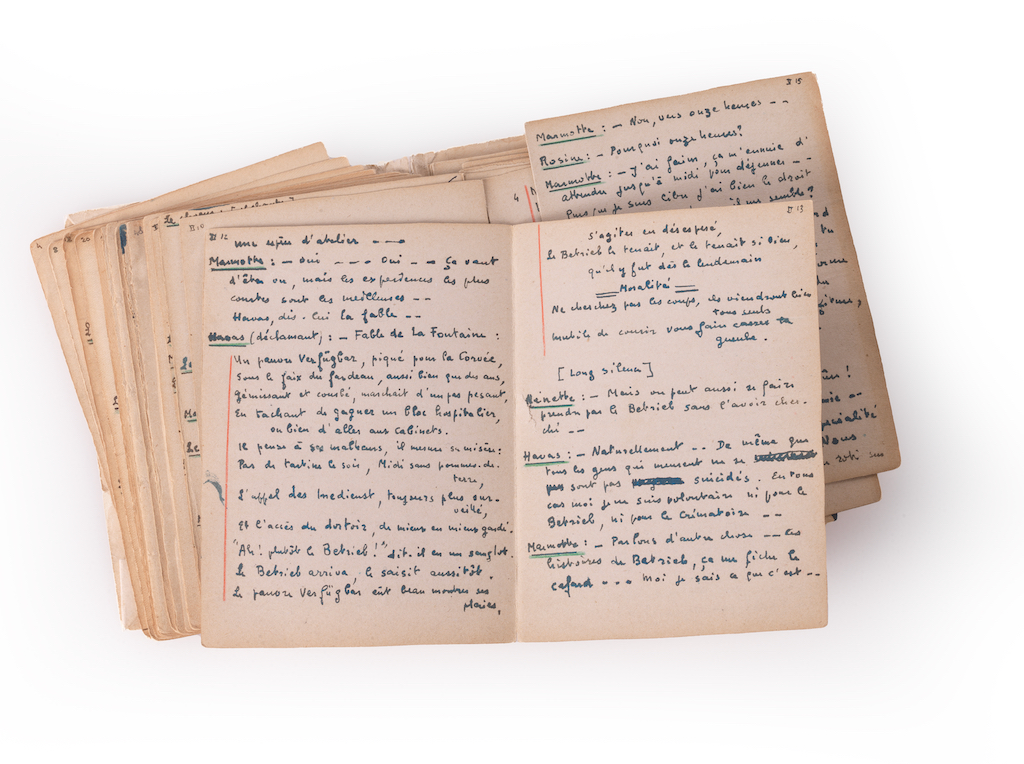 II 12
une espèce d'atelier - - -
Marmotte : - Oui - - - Oui - - Ça vaut
d'être vu, mais les expériences les plus
courtes sont les meilleures - -
Havas, dis-lui la fable - -
Havas (déclamant) : - Fable de La Fontaine :
Un pauvre Verfügbar, piqué pour la Corvée,
Sous le faix du fardeau, aussi bien que des ans,
Gémissant et courbé, marchait d'un pas pesant,
En tâchant de gagner un bloc hospitalier,
ou bien d'aller aux Cabinets.
Il pense à ses malheurs, il mesure sa misère :
Pas de tartine le soir, Midi sans pommes-de-
terre,
L'appel des Inedienst, toujours plus sur-
veillé,
Et l'accès du dortoir, de mieux en mieux gardé.
"Ah ! plutôt le Betrieb !" dit-il en un sanglot.
Le Betrieb arriva, le saisit aussitôt.
Le pauvre Verfügbar eût beau montrer ses
plaies,
II 13
S'agiter en désespéré,
Le Betrieb le tenait, et le tenait si bien,
qu'il y fut dès le lendemain
Moralité
Ne cherchez pas les coups, ils viendront bien
tous seuls
Inutile de courir vous faire casser la
gueule.
[Long silence]
Nénette : - Mais on peut aussi se faire
prendre par le Betrieb sans l'avoir cher-
ché - -
Havas : - Naturellement - - De même que
tous les gens qui meurent ne se
sont pas suicidés. En tous
cas moi je ne suis volontaire ni pour le
Betrieb, ni pour le Crématoire - -
Marmotte : - Parlons d'autre chose - - Les
histoires de Betrieb, ça me fiche le
cafard - - - Moi je sais ce que c'est - -
II 15
Marmotte : - Non, vers onze heures - -
Rosine : - Pourquoi onze heures ?
Marmotte : - J'ai faim, ça m'ennuie d'
attendre jusqu'à midi pour déjeuner - -
Puisque je suis libre j'ai bien le droit
il me semble ?